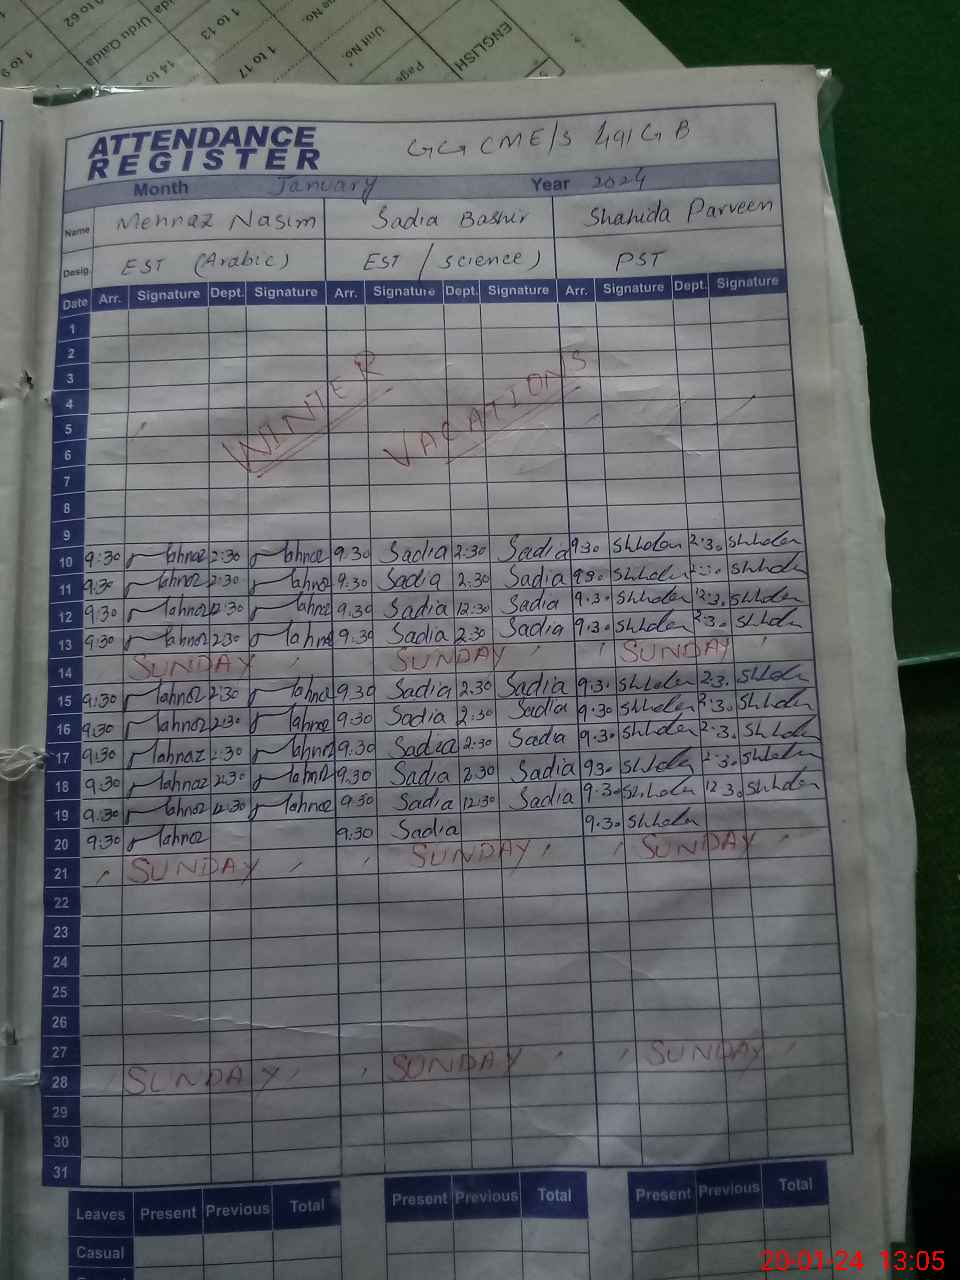 ENGLISH
Unit No.
1 to 17
1 to 13
Urdu Qaida
ATTENDANCE
REGISTER
GGCME/S 491 GB
Month January Year 2024
Name Mehnaz Nasim Sadia Bashir Shahida Parveen
Desig. EST (Arabic) EST / science) PST
Date Arr. Signature Dept. Signature Arr. Signature Dept. Signature Arr. Signature Dept. Signature
1
2
3
4
5
6
7
8
9
WINTER VACATIONS
10 9:30 2:30 9.30 Sadia 2:30 Sadia 9.30 2.30
11 9:30 2:30 9:30 Sadia 2:30 Sadia 9.30 2:30
12 9:30 12:30 9.30 Sadia 12:30 Sadia 9.30 12.30
13 9:30 2:30 9.30 Sadia 2:30 Sadia 9.30 2.30
14 SUNDAY SUNDAY SUNDAY
15 9:30 2:30 9.30 Sadia 2.30 Sadia 9.30 2.30
16 9:30 2:30 9:30 Sadia 2:30 Sadia 9.30 2.30
17 9:30 2:30 9:30 Sadia 2:30 Sadia 9.30 2.30
18 9:30 2:30 9:30 Sadia 2:30 Sadia 930 2.30
19 9:30 12:30 9:30 Sadia 12:30 Sadia 9.30 12.30
20 9:30 9:30 Sadia 9.30
21 SUNDAY SUNDAY SUNDAY
22
23
24
25
26
27
28 SUNDAY SUNDAY SUNDAY
29
30
31
Leaves Present Previous Total Present Previous Total Present Previous Total
Casual
20-01-24 13:05